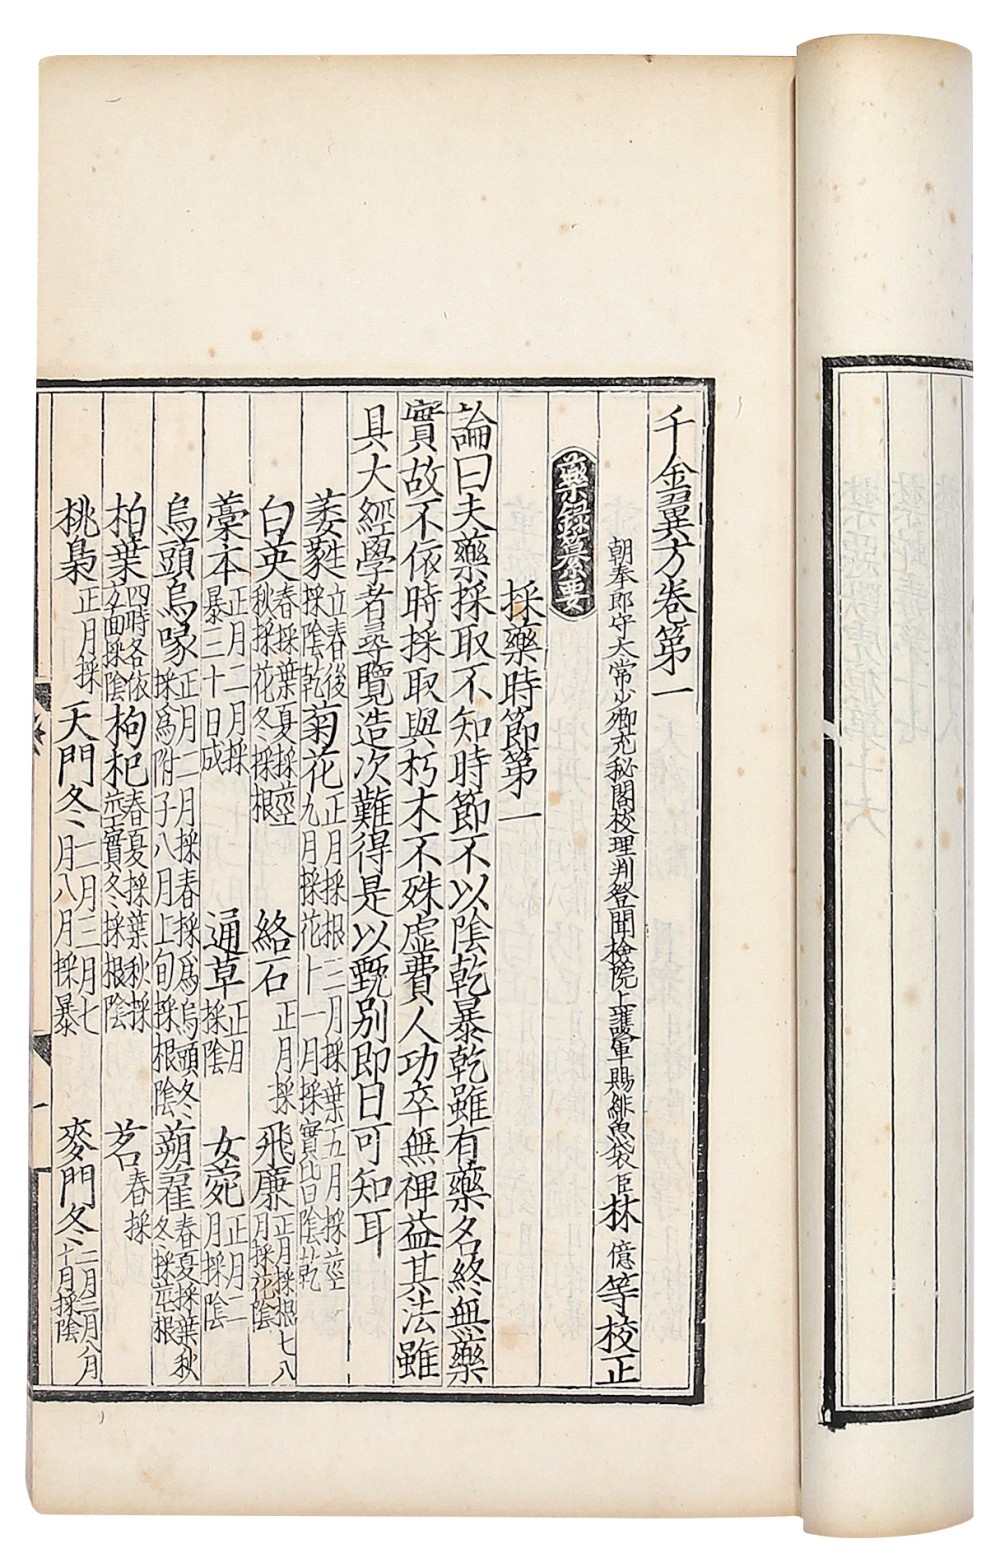 千金翼方卷第一
朝奉郎守太常少卿充秘閣校理判登聞檢院上護軍賜緋魚袋臣林億等校正
藥録纂要
採藥時節第一
論曰夫藥採取不知時節不以陰乾暴乾雖有藥名終無藥
實故不依時採取與朽木不殊虛費人功卒無裨益其法雖
具大經學者尋覽造次難得是以甄別即日可知耳
萎蕤立春後採陰乾菊花正月採根三月採葉五月採莖九月採花十一月採實皆陰乾
白英春採葉夏採莖秋採花冬採根 絡石正月採 飛廉正月採根七八月採花陰
藁本正月二月採暴三十日成 通草正月採陰 女菀正月二月採陰
烏頭烏喙正月二月採春採爲烏頭冬採爲附子八月上旬採根陰 蒴藋春夏採葉秋冬採莖根
柏葉四時各依方面採陰枸杞春夏採葉秋採莖實冬採根陰 茗春採
桃梟正月採天門冬二月三月七月八月採暴 麥門冬二月三月八月十月採陰